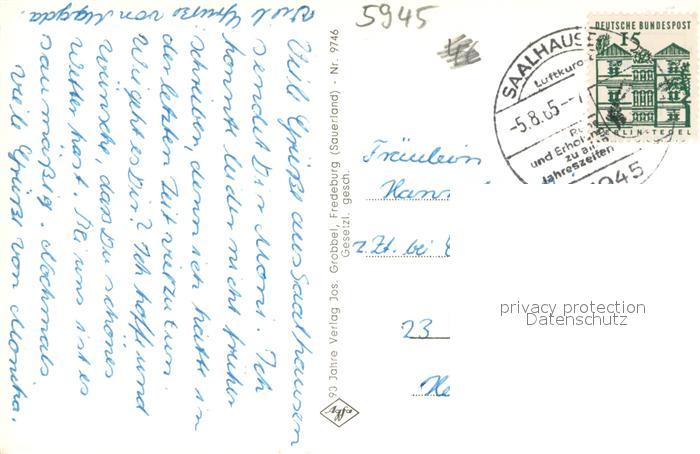 Viele Grüße von Magda.
Viel Grüße aus Saalhausen
sendet Dir Moni. Ich
konnte leider nicht früher
schreiben, denn ich hatte in
der letzten Zeit viel zu tun.
Wie geht es Dir? Ich hoffe und
wünsche, daß Du schönes
Wetter hast. Bei uns ist es
saumäßig. Nochmals
viele Grüße von Monika.
90 Jahre Verlag Jos. Grobbel, Fredeburg (Sauerland) - Nr. 9746
Gesetzl. gesch.
5945
DEUTSCHE BUNDESPOST
15
BERLIN-TEGEL
SAALHAUSE
Luftkuro
-5.8.65--
und Erholun
zu a
Jahreszeiten
5945
Fräulein
Hann
z.Zt. bei
23
privacy protection
Datenschutz